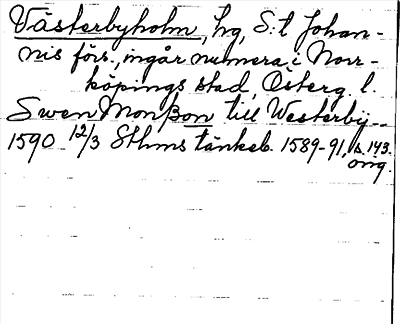 Västerbyholm, hg, S:t Johan-
nis förs., ingår numera i Norr-
köpings stad, Österg. l.
Swen Monßon till Westerbÿ--
1590 12/3 Sthms tänkeb. 1589-91, s. 143.
orig.